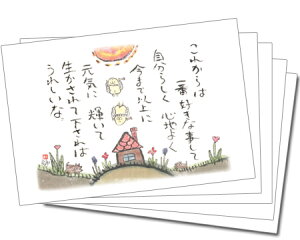 これからは
一番好きな事して
自分らしく心地よく
今まで以上に
元気に輝いて
生かされて下されば
うれしいな